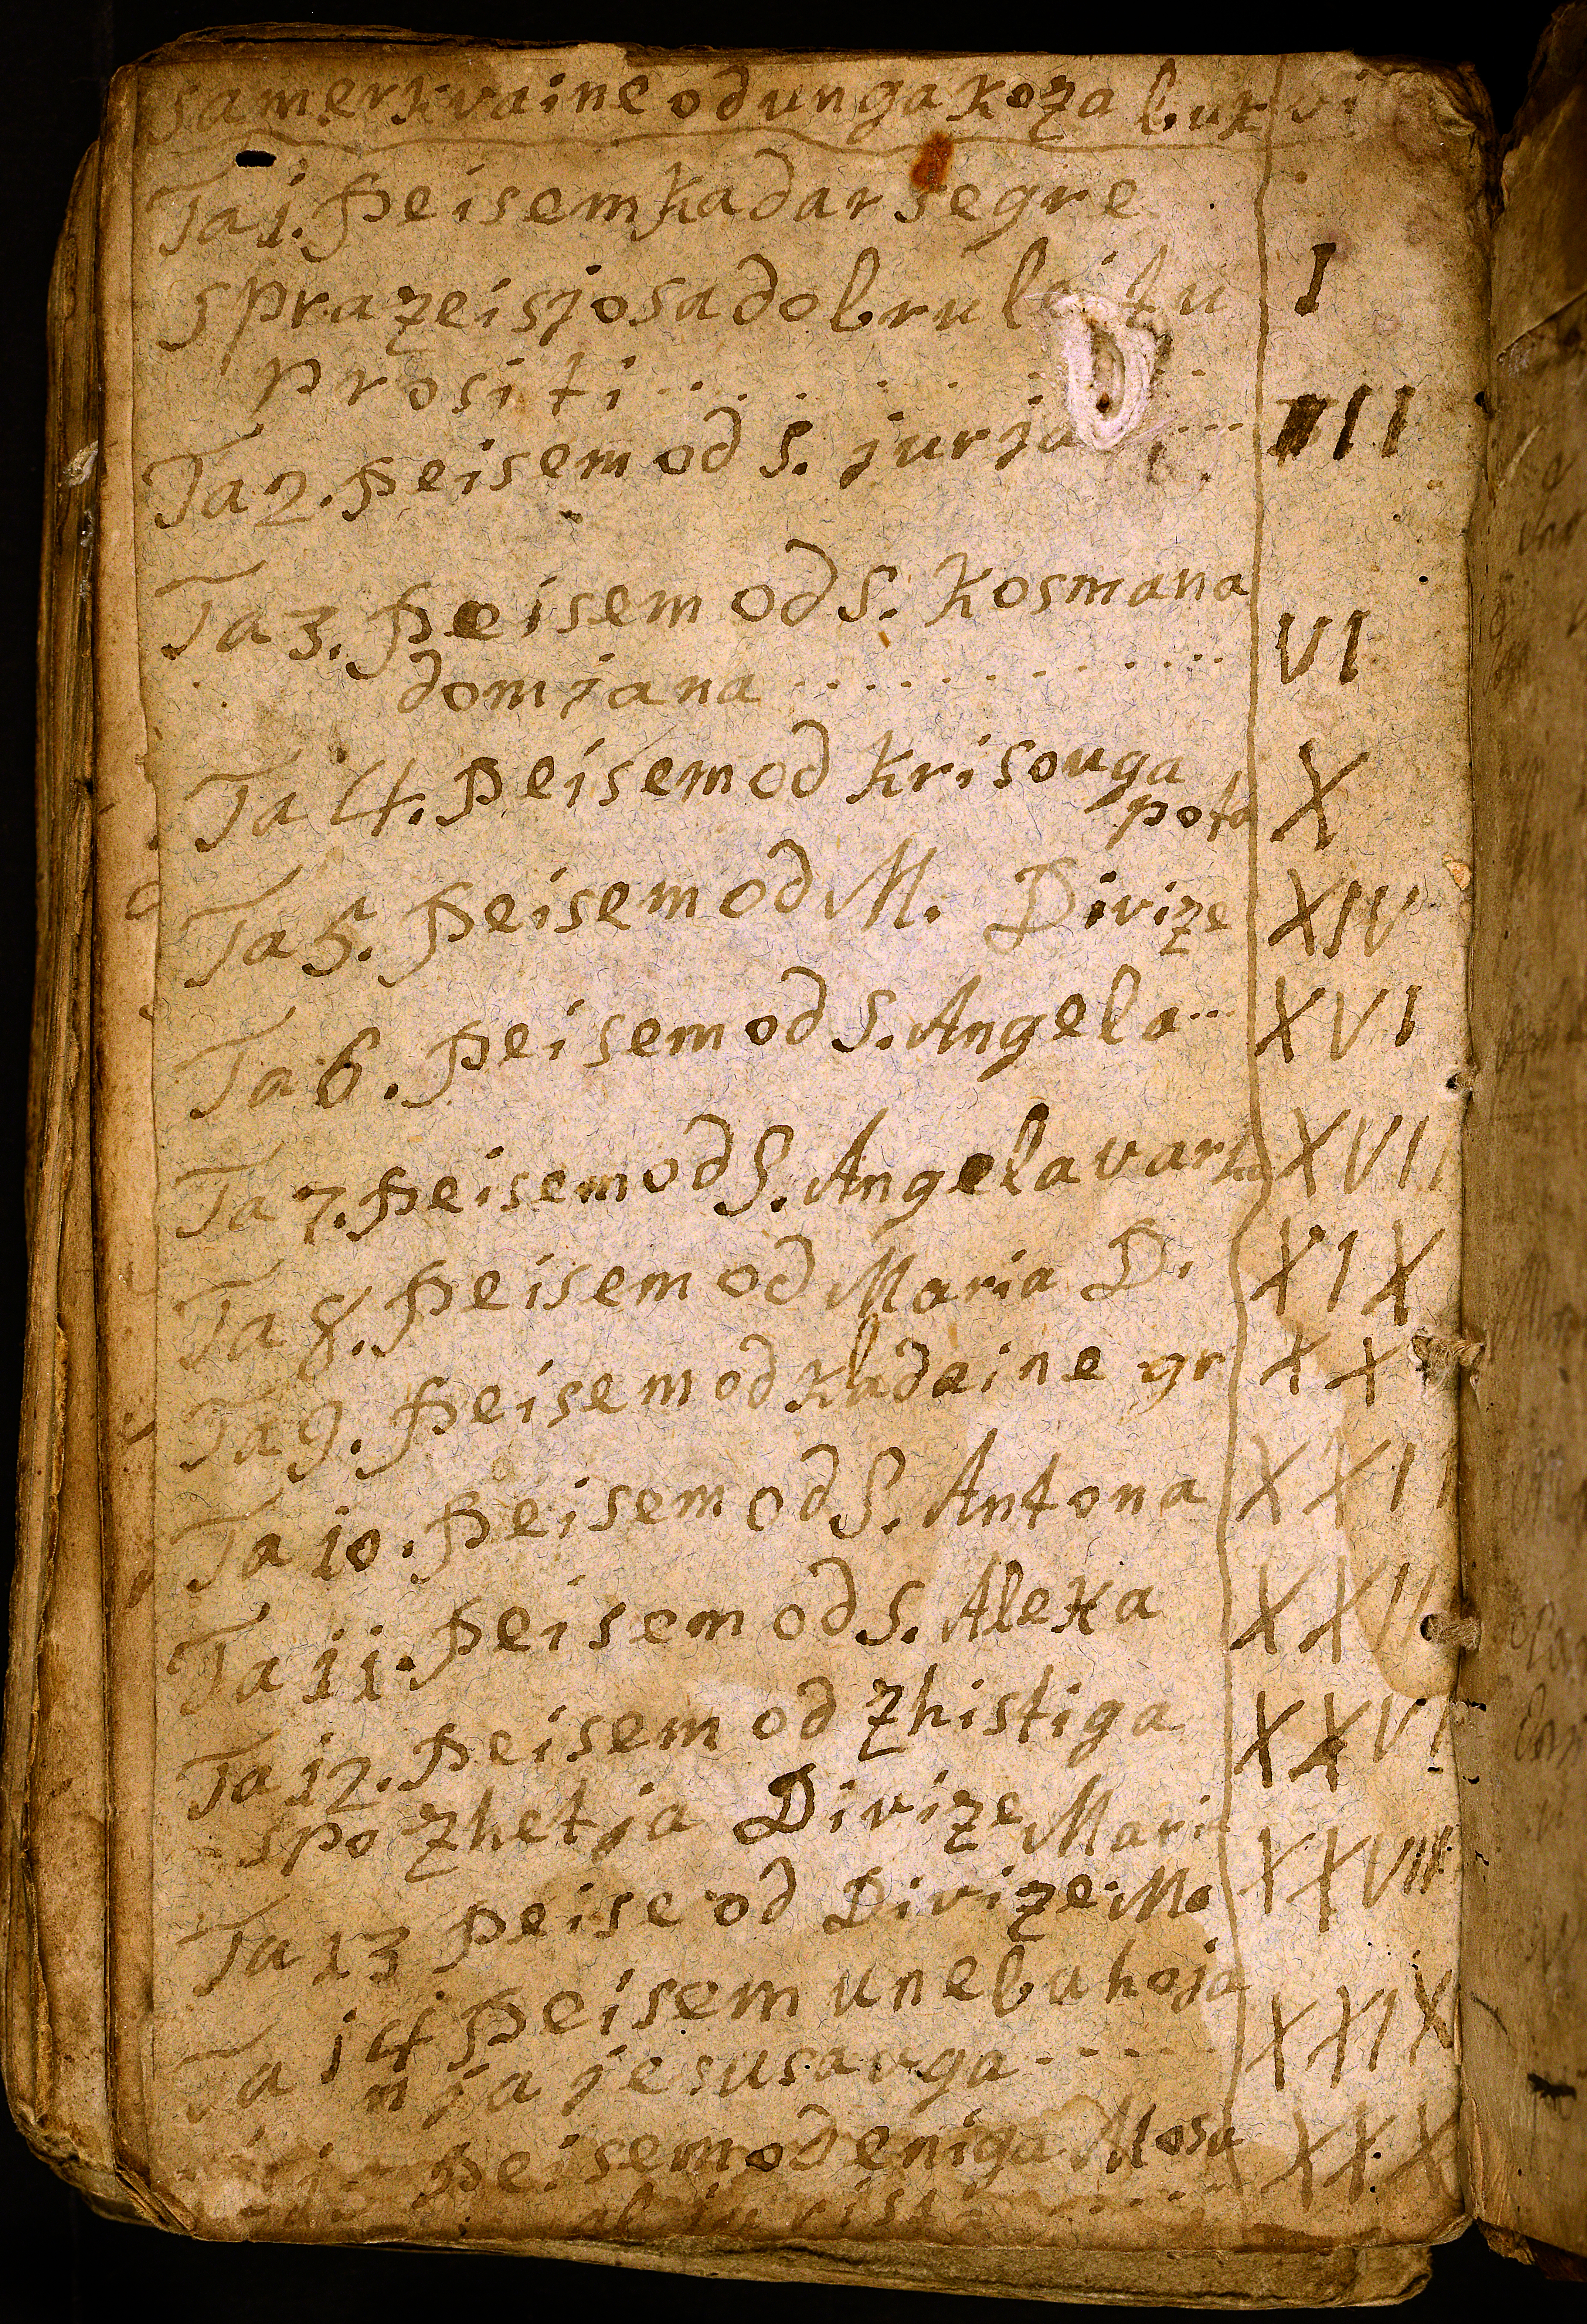 samerkvaine od unga koza bukvi
Ta 1. peisem kadar se gre
s prazeisjo sa dobru leitu I
prositi . . . . . . . .
Ta 2. peisem od S. jurja . . . . III
Ta 3. peisem od S. Kosmana
domjana . . . . . . . . . . . . VI
Ta 4. peisem od krisouga X
pota
Ta 5. peisem od M. Divize XIV
Ta 6. peisem od S. Angela . . . XVI
Ta 7. peisem od S. Angela varha XVII
Ta 8. peisem od Maria D. XIX
Ta 9. peisem od kladaine gr XX
Ta 10. peisem od S. Antona XXI
Ta 11. peisem od S. Alexa
Ta 12. peisem od zhistiga XXVI
spozhetja Divize Mari
Ta 13 peise od Divize Ma XXVIII
Ta 14 peisem u nebu hoja
nja jesusavga - - - - - - XXIX
peisem od eniga Mosu XXX